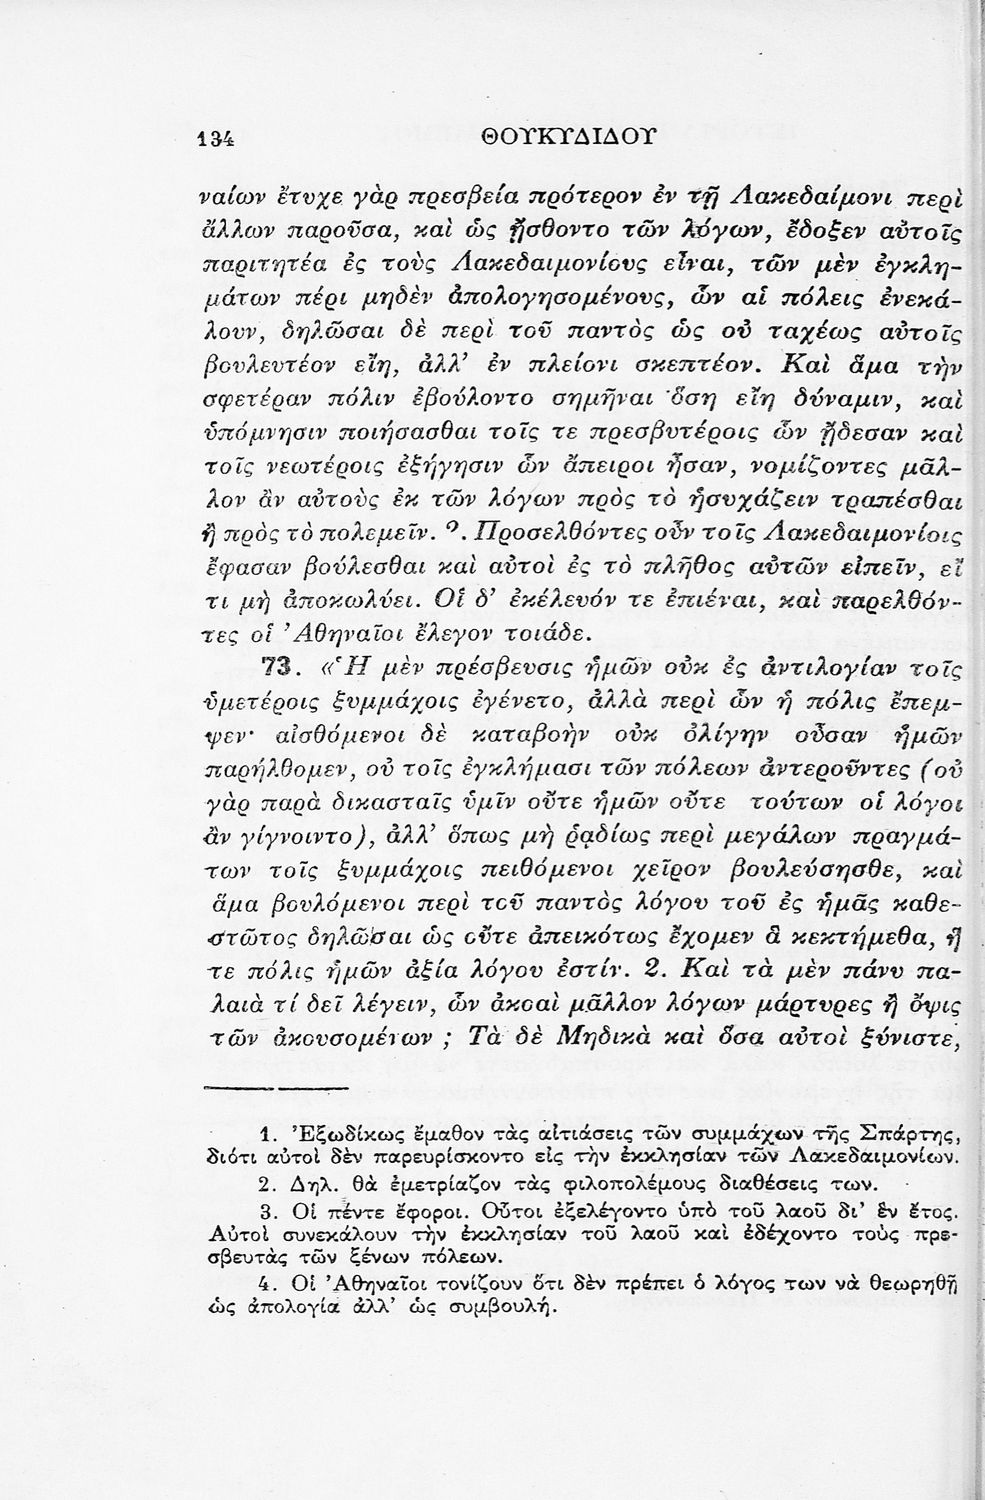 134 ΘΟΥΚΥΔΙΔΟΥ
ναίων ἔτυχε γὰρ πρεσβεία πρότερον ἐν τῇ Λακεδαίμονι περὶ
ἄλλων παροῦσα, καὶ ὡς ᾔσθοντο τῶν λόγων, ἔδοξεν αὐτοῖς
παριτητέα ἐς τοὺς Λακεδαιμονίους εἶναι, τῶν μὲν ἐγκλη-
μάτων πέρι μηδὲν ἀπολογησομένους, ὧν αἱ πόλεις ἐνεκά-
λουν, δηλῶσαι δὲ περὶ τοῦ παντὸς ὡς οὐ ταχέως αὐτοῖς
βουλευτέον εἴη, ἀλλ' ἐν πλείονι σκεπτέον. Καὶ ἅμα τὴν
σφετέραν πόλιν ἐβούλοντο σημῆναι ὅση εἴη δύναμιν, καὶ
ὑπόμνησιν ποιήσασθαι τοῖς τε πρεσβυτέροις ὧν ᾔδεσαν καὶ
τοῖς νεωτέροις ἐξήγησιν ὧν ἄπειροι ἦσαν, νομίζοντες μᾶλ-
λον ἂν αὐτοὺς ἐκ τῶν λόγων πρὸς τὸ ἡσυχάζειν τραπέσθαι
ἢ πρὸς τὸ πολεμεῖν. Προσελθόντες οὖν τοῖς Λακεδαιμονίοις
ἔφασαν βούλεσθαι καὶ αὐτοὶ ἐς τὸ πλῆθος αὐτῶν εἰπεῖν, εἴ
τι μὴ ἀποκωλύει. Οἱ δ' ἐκέλευόν τε ἐπιέναι, καὶ παρελθόν-
τες οἱ Ἀθηναῖοι ἔλεγον τοιάδε.
73. «Ἡ μὲν πρέσβευσις ἡμῶν οὐκ ἐς ἀντιλογίαν τοῖς
ὑμετέροις ξυμμάχοις ἐγένετο, ἀλλὰ περὶ ὧν ἡ πόλις ἔπεμ-
ψεν· αἰσθόμενοι δὲ καταβοὴν οὐκ ὀλίγην οὖσαν ἡμῶν
παρήλθομεν, οὐ τοῖς ἐγκλήμασι τῶν πόλεων ἀντεροῦντες (οὐ
γὰρ παρὰ δικασταῖς ὑμῖν οὔτε ἡμῶν οὔτε τούτων οἱ λόγοι
ἂν γίγνοιντο), ἀλλ' ὅπως μὴ ῥᾳδίως περὶ μεγάλων πραγμά-
των τοῖς ξυμμάχοις πειθόμενοι χεῖρον βουλεύσησθε, καὶ
ἅμα βουλόμενοι περὶ τοῦ παντὸς λόγου τοῦ ἐς ἡμᾶς καθε-
στῶτος δηλῶσαι ὡς οὔτε ἀπεικότως ἔχομεν ἃ κεκτήμεθα, ἥ
τε πόλις ἡμῶν ἀξία λόγου ἐστίν. 2. Καὶ τὰ μὲν πάνυ πα-
λαιὰ τί δεῖ λέγειν, ὧν ἀκοαὶ μᾶλλον λόγων μάρτυρες ἢ ὄψις
τῶν ἀκουσομένων ; Τὰ δὲ Μηδικὰ καὶ ὅσα αὐτοὶ ξύνιστε,
1. Ἐξωδίκως ἔμαθον τὰς αἰτιάσεις τῶν συμμάχων τῆς Σπάρτης,
διότι αὐτοὶ δὲν παρευρίσκοντο εἰς τὴν ἐκκλησίαν τῶν Λακεδαιμονίων.
2. Δηλ. θὰ ἐμετρίαζον τὰς φιλοπολέμους διαθέσεις των.
3. Οἱ πέντε ἔφοροι. Οὗτοι ἐξελέγοντο ὑπὸ τοῦ λαοῦ δι' ἓν ἔτος.
Αὐτοὶ συνεκάλουν τὴν ἐκκλησίαν τοῦ λαοῦ καὶ ἐδέχοντο τοὺς πρε-
σβευτὰς τῶν ξένων πόλεων.
4. Οἱ Ἀθηναῖοι τονίζουν ὅτι δὲν πρέπει ὁ λόγος των νὰ θεωρηθῇ
ὡς ἀπολογία ἀλλ' ὡς συμβουλή.